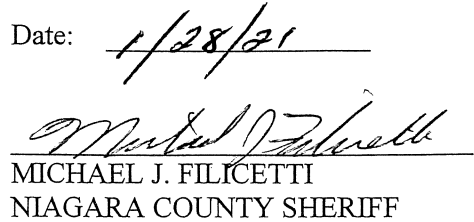 Date: 1/28/21
Michael J Filicetti
MICHAEL J. FILICETTI
NIAGARA COUNTY SHERIFF